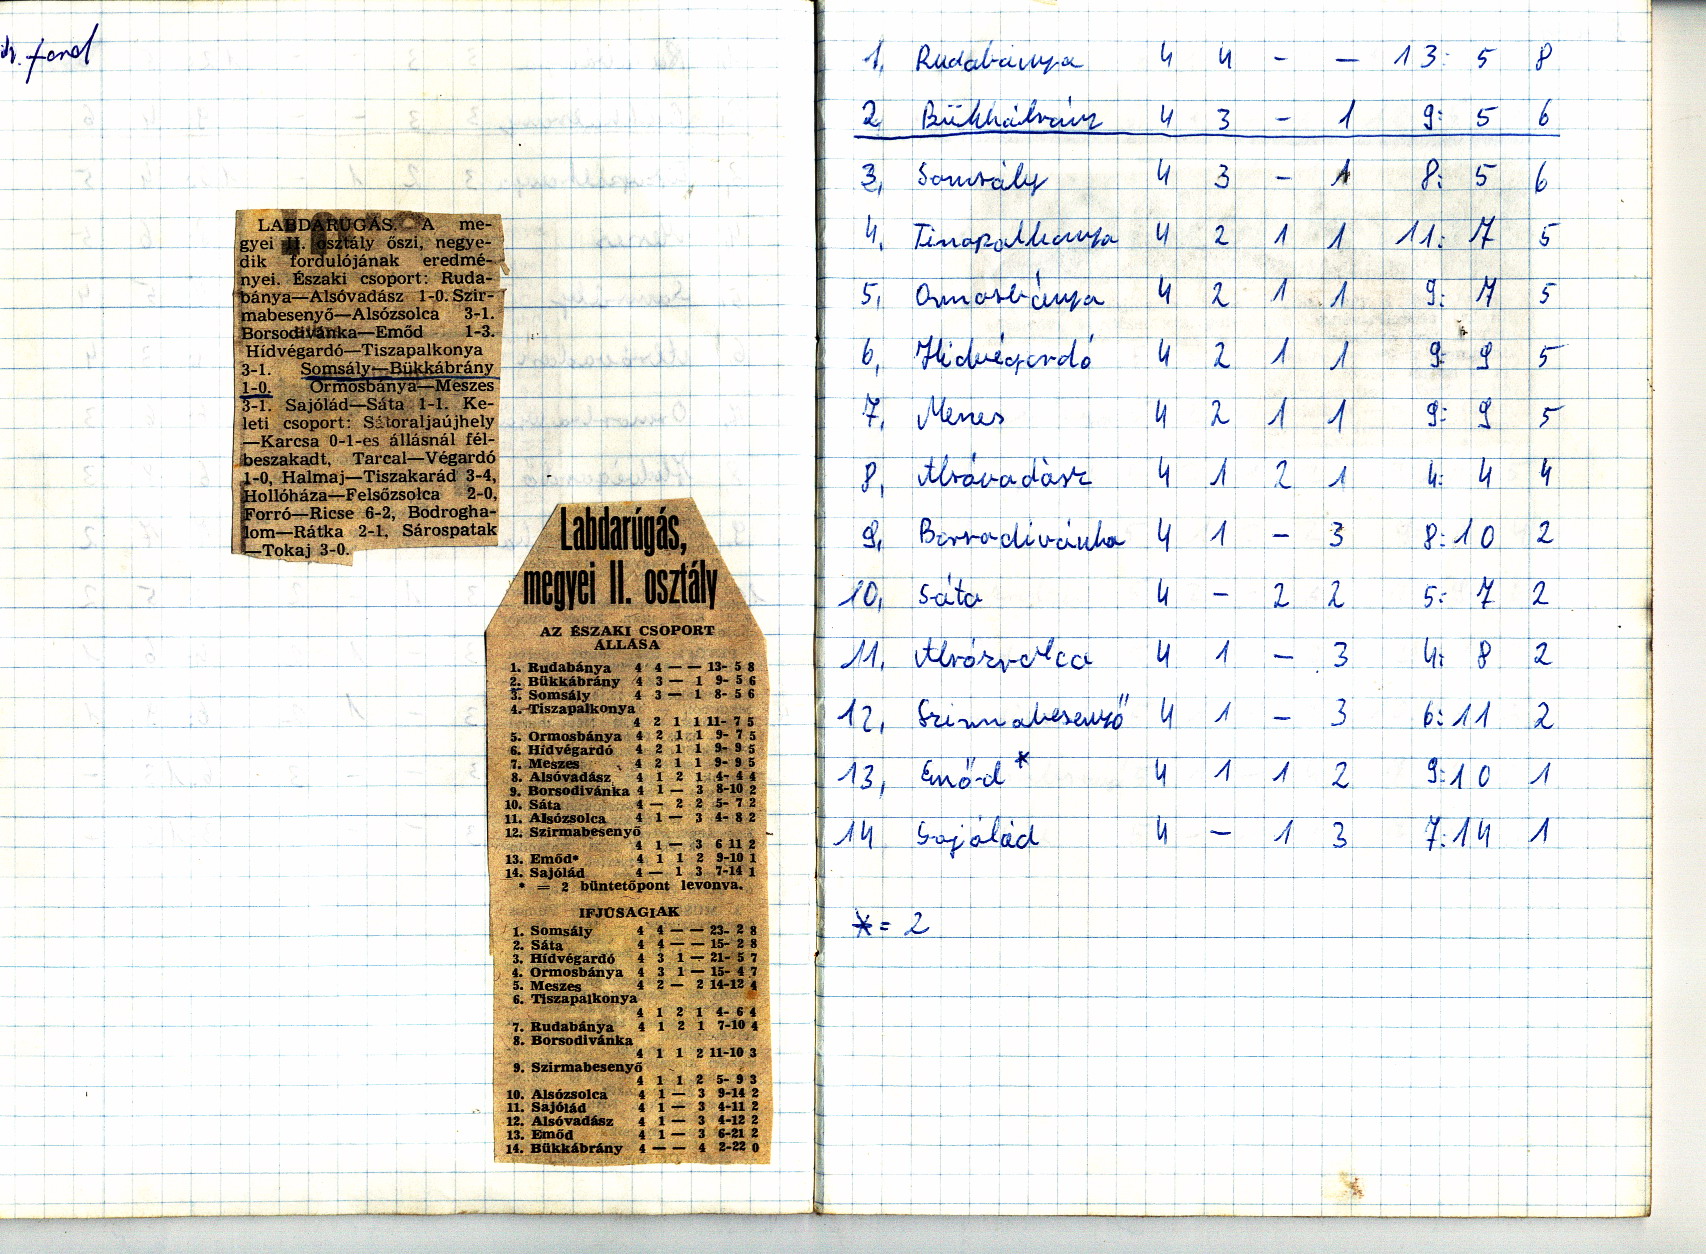 ford
LABDARÚGÁS. A me-
gyei II. osztály őszi, negye-
dik fordulójának eredmé-
nyei. Északi csoport: Ruda-
bánya—Alsóvadász 1-0. Szir-
mabesenyő—Alsózsolca 3-1.
Borsodivánka—Emőd 1-3.
Hídvégardó—Tiszapalkonya
3-1. Somsály—Bükkábrány
1-0. Ormosbánya—Meszes
3-1. Sajólád—Sáta 1-1. Ke-
leti csoport: Sátoraljaújhely
—Karcsa 0-1-es állásnál fél-
beszakadt, Tarcal—Végardó
1-0, Halmaj—Tiszakarád 3-4,
Hollóháza—Felsőzsolca 2-0,
Forró—Ricse 6-2, Bodrogha-
lom—Rátka 2-1, Sárospatak
—Tokaj 3-0.
Labdarúgás,
megyei II. osztály
AZ ÉSZAKI CSOPORT
ÁLLÁSA
1. Rudabánya 4 4 — — 13- 5 8
2. Bükkábrány 4 3 — 1 9- 5 6
3. Somsály 4 3 — 1 8- 5 6
4. Tiszapalkonya
4 2 1 1 11- 7 5
5. Ormosbánya 4 2 1 1 9- 7 5
6. Hídvégardó 4 2 1 1 9- 9 5
7. Meszes 4 2 1 1 9- 9 5
8. Alsóvadász 4 1 2 1 4- 4 4
9. Borsodivánka 4 1 — 3 8-10 2
10. Sáta 4 — 2 2 5- 7 2
11. Alsózsolca 4 1 — 3 4- 8 2
12. Szirmabesenyő
4 1 — 3 6 11 2
13. Emőd* 4 1 1 2 9-10 1
14. Sajólád 4 — 1 3 7-14 1
* = 2 büntetőpont levonva.
IFJÚSÁGIAK
1. Somsály 4 4 — — 23- 2 8
2. Sáta 4 4 — — 15- 2 8
3. Hídvégardó 4 3 1 — 21- 5 7
4. Ormosbánya 4 3 1 — 15- 4 7
5. Meszes 4 2 — 2 14-12 4
6. Tiszapalkonya
4 1 2 1 4- 6 4
7. Rudabánya 4 1 2 1 7-10 4
8. Borsodivánka
4 1 1 2 11-10 3
9. Szirmabesenyő
4 1 1 2 5- 9 3
10. Alsózsolca 4 1 — 3 9-14 2
11. Sajólád 4 1 — 3 4-11 2
12. Alsóvadász 4 1 — 3 4-12 2
13. Emőd 4 1 — 3 6-21 2
14. Bükkábrány 4 — — 4 2-22 0
1, Rudabánya 4 4 - — 13: 5 8
2, Bükkábrány 4 3 - 1 9: 5 6
3, Somsály 4 3 - 1 8: 5 6
4, Tiszapalkonya 4 2 1 1 11: 7 5
5, Ormosbánya 4 2 1 1 9: 7 5
6, Hidvégardó 4 2 1 1 9: 9 5
7, Meszes 4 2 1 1 9: 9 5
8, Alsóvadász 4 1 2 1 4: 4 4
9, Borsodivánka 4 1 - 3 8:10 2
10, Sáta 4 - 2 2 5: 7 2
11, Alsózsolca 4 1 - 3 4: 8 2
12, Szirmabesenyő 4 1 - 3 6:11 2
13, Emőd * 4 1 1 2 9:10 1
14 Sajólád 4 - 1 3 7:14 1
* = 2